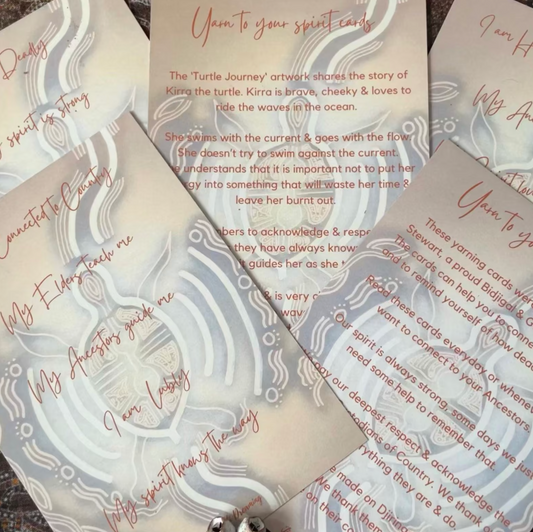 Deadly
spirit is strong
Yarn to your spirit cards
The 'Turtle Journey' artwork shares the story of
Kirra the turtle. Kirra is brave, cheeky & loves to
ride the waves in the ocean.
She swims with the current & goes with the flow
She doesn't try to swim against the current.
understands that it is important not to put her
gy into something that will waste her time &
leave her burnt out.
bers to acknowledge & respe
they have always know
it guides her as she
& is very
wav
I am H
My Anc
Connected to Country
My Elders teach me
My Ancestors guide me
I am Lubly
My spirit knows the way
Yarn to yo
These yarning cards wer
Stewart, a proud Bidjigal &
The cards can help you to conne
and to remind yourself of how dea
Read these cards everyday or wheneve
want to connect to your Ancestors.
Our spirit is always strong, some days we jus
need some help to remember that.
pay our deepest respect & acknowledge the
todians of Country. We thank
erything they are & do
made on Dj
We thank
on their c